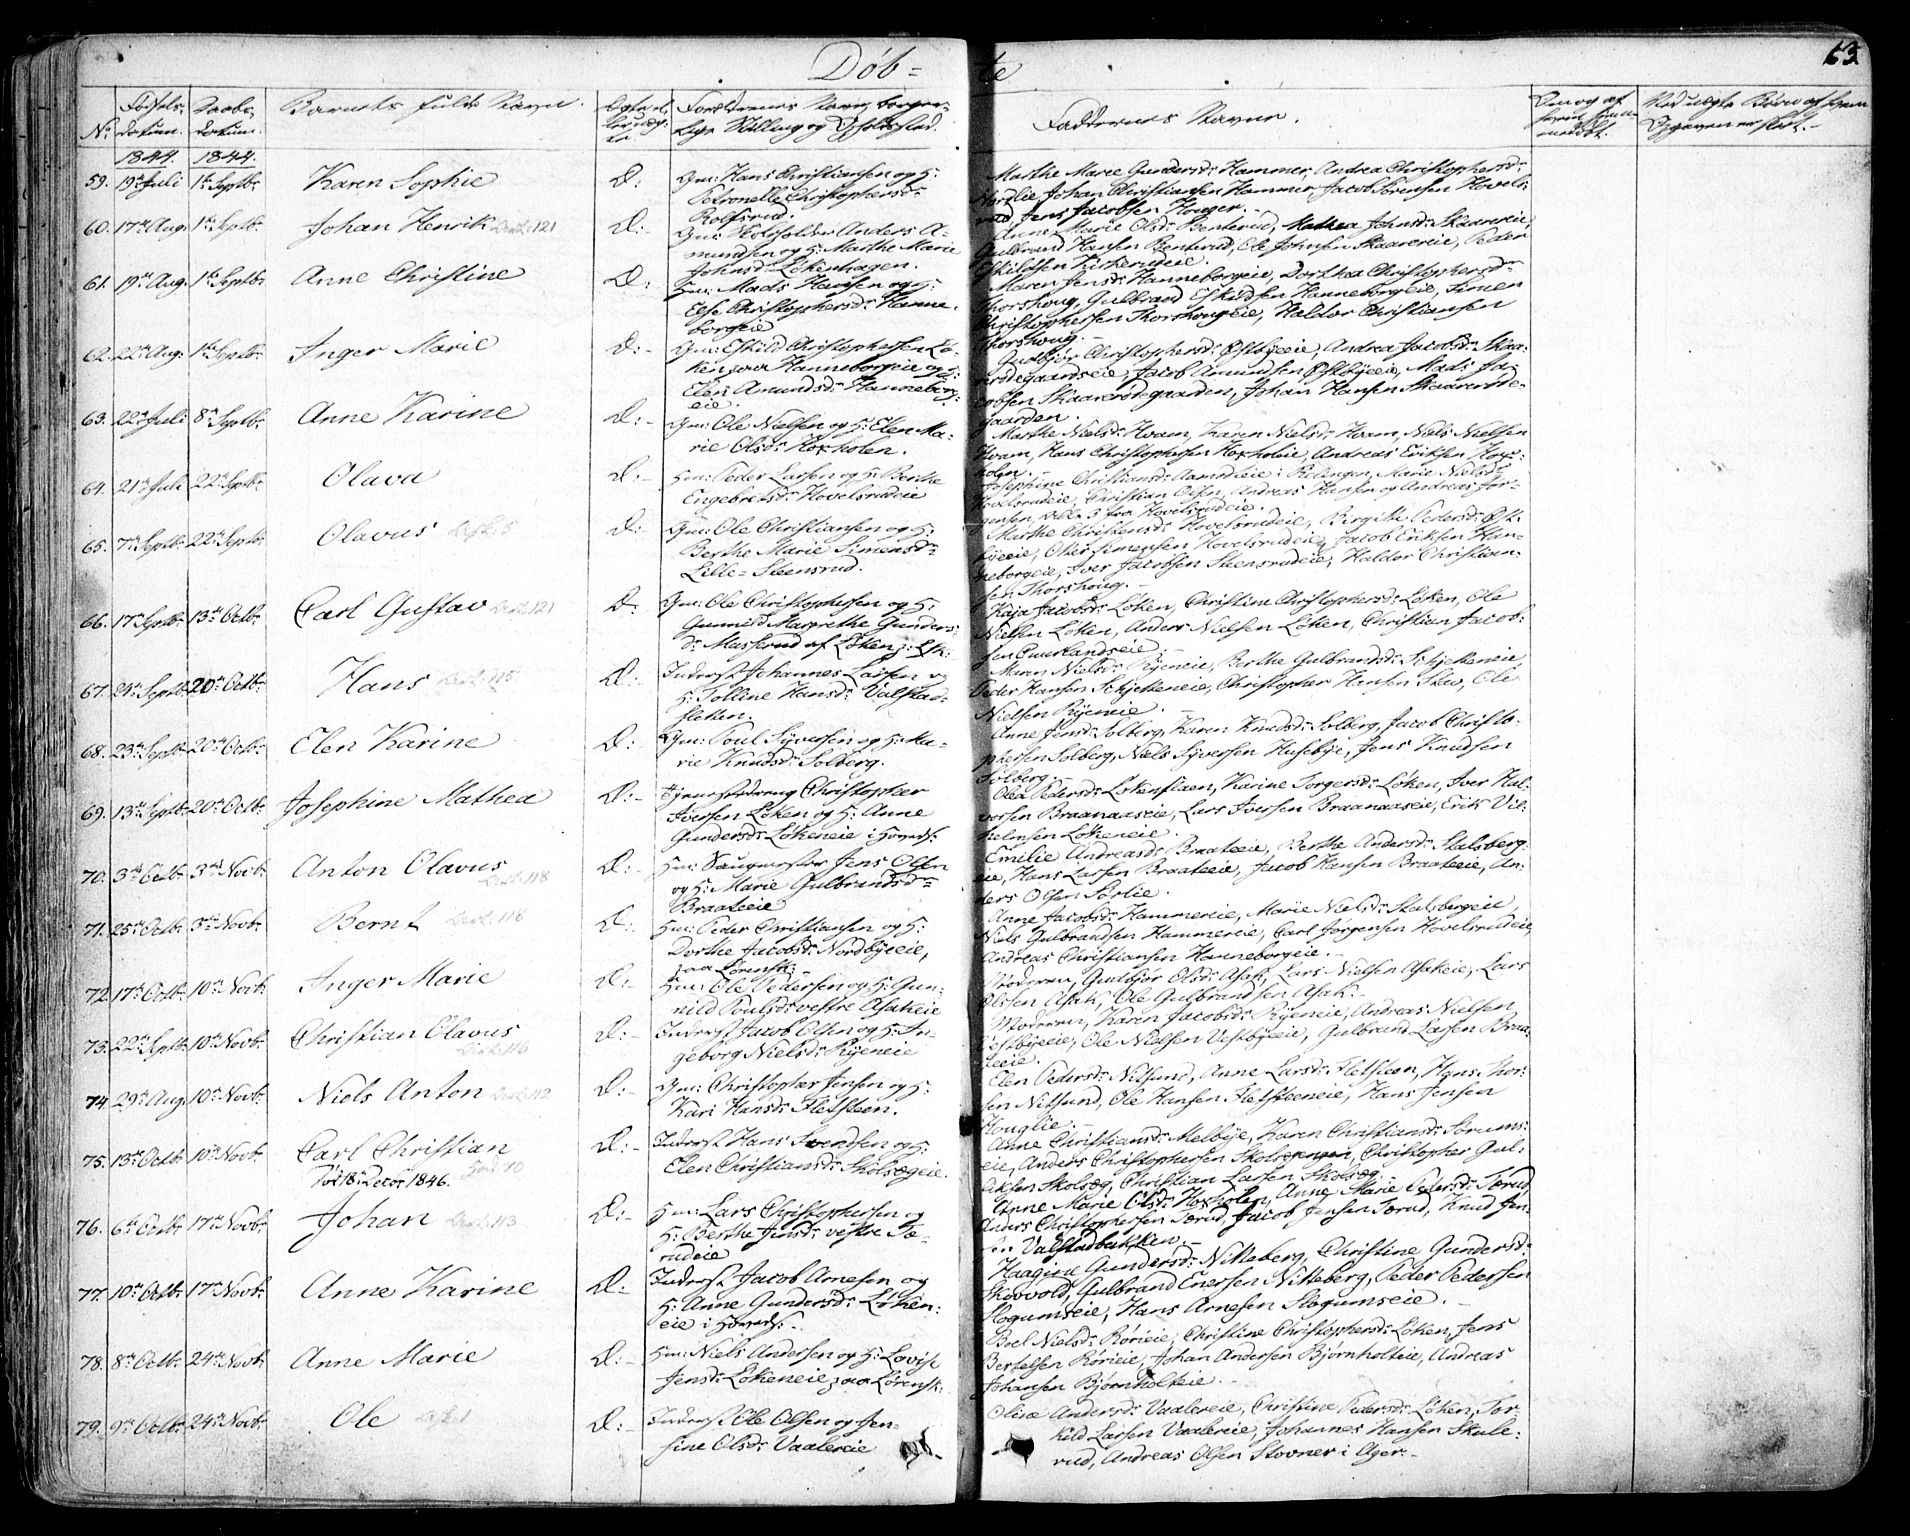 Døb=
te
63
No
Fødsels-
datum.
Daabs-
datum.
Barnets fulde Navn.
Forældrenes Navn, borger-
lige Stilling og Opholdssted.
Faddernes Navne.
1844. 1844.
59. 19de Juli 1ste Septbr. Karen Sophie D:
Gm: Hans Christiansen og H:
Petronelle Christophersdr
Rolfsrud.
Marthe Marie Gundersdr Hammer, Andrea Christophersdr
Johan Christiansen Hammer, Jacob Sørensen Hovels-
rud, Jens Jacobsen Houger.
60. 17de Aug. 1ste Septbr. Johan Henrik 121 D:
Gm: Skoleholder Anders A-
mundsen og H: Marthe Marie
Johnsdr Løkenhagen.
Anne Marie Olsdr Benterud, Mathea Johnsdr Skaarereie,
Gulbrand Hansen Benterud, Ole Johnsen Skaarereie, Peder
Eskildsen Kirkerudeie.
61. 19de Aug. 1ste Septbr. Anne Christine D:
Hm: Mads Hansen og H:
Else Christophersdr Hanne-
borgeie
Maren Jensdr Hanneborgeie, Dorthea Christophersdr
Thorshoug, Gulbrand Eskildsen Hanneborgeie, Simen
Christophersen Thorshougeie, Haldor Christiansen
Thorshoug.
62. 22de Aug. 1ste Septbr. Inger Marie D:
Gm: Eskild Christophersen Lø-
ken paa Hanneborgeie og H:
Elen Amundsdr Hanneborg-
eie.
Gulbjør Christophersdr Østbyeie, Andrea Jacobsdr Skaa-
rerødegaardseie, Jacob Amundsen Østbyeie, Mads Ja-
cobsen Skaarerødegaarden, Johan Hansen Skaarerøde-
gaarden.
63. 22de Juli 8de Septbr. Anne Karine D:
Gm: Ole Nielsen og H: Elen Ma-
rie Olsdr Hoxholen.
Marthe Nielsdr Hvam, Karen Nielsdr Hvam, Niels Nielsen
Hvam, Hans Christophersen Hoxholeie, Andreas Eriksen Hox-
holen.
64. 21de Juli 22de Septbr. Olava D:
Hm: Peder Larsen og H: Berthe
Engebretsdr Hovelsrudeie
Josephine Christiansdr Aamodteie i Rælingen, Marie Nielsdr
Hovelsrudeie, Christian Olsen, Andreas Hansen og Andreas Jør-
gensen, alle 3 fra Hovelsrudeie.
65. 7de Septbr. 22de Septbr. Olavus D:
Gm: Ole Christiansen og H:
Berthe Marie Simensdr
Lille-Steensrud.
Marthe Christensdr Hovelsrudeie, Birgithe Pedersdr Øst-
byeeie, Ole Simensen Hovelsrudeie, Jacob Eriksen Han-
neborgeie, Iver Jacobsen Steensrudeie, Haldor Christian-
sen Thorshoug.
66. 17de Septbr. 13de Octbr. Carl Gustav 121 D:
Gm: Ole Christophersen og H:
Gunnild Margrethe Gunders-
dr Masserud af Løken
Kaja Jacobsdr Løken, Christine Christophersdr Løken, Ole
Nielsen Løken, Anders Nielsen Løken, Christian Jacob-
sen Puurlandseie.
67. 24de Septbr. 20de Octbr. Hans 115 D:
Inderst Johannes Larsen og
H: Polline Hansdr Valstad-
sletten.
Maren Nielsdr Ryeneie, Berthe Gulbrandsdr Schjetteneie,
Peder Hansen Schjetteneie, Christopher Hansen Skev, Ole
Nielsen Ryeneie.
68. 23de Septbr. 20de Octbr. Elen Karine D:
Gm: Poul Syversen og H: Ma-
rie Knudsdr Solberg.
Anne Jensdr Solberg, Karen Knudsdr Solberg, Jacob Christo-
phersen Solberg, Niels Syversen Husebye, Jens Knudsen
Solberg.
69. 13de Septbr. 20de Octbr. Josephine Mathea D:
Tjenestedreng Christopher
Iversen Løken og H: Anne
Gundersdr Løkeneie i Hoveds:
Olea Pedersdr Løkenslaen, Karine Torgersdr Løken, Iver Hal-
vorsen Braanaaseie, Lars Iversen Braanaaseie, Erik Vil-
helmsen Løkeneie.
70. 3de Octbr. 3de Novbr. Anton Olavus 118 D:
Hm: Saugmester Jens Olsen
og H: Marie Gulbrandsdr
Braateeie
Emilie Andreasdr Braateeie, Berthe Andersdr Stalsberg-
eie, Hans Larsen Braateeie, Jacob Hansen Braateeie, An-
ders Olsen Sørlie.
71. 25de Octbr. 3de Novbr. Bernt 118 D:
Hm: Peder Christiansen og H:
Dorthe Jacobsdr Nordbyeeie,
paa Lørensk:
Anne Jacobsdr Hammereie, Marie Nielsdr Stalsbergeie,
Niels Gulbrandsen Hammereie, Carl Jørgensen Hovelsrudeie,
Andreas Christiansen Hanneborgeie.
72. 17de Octbr. 10de Novbr. Inger Marie D:
Hm: Ole Pedersen og H: Gun-
nild Poulsdr vestre Asakeie
Moderen, Gulbjør Olsdr Asak, Lars Nielsen Asakeie, Lars
Olsen Asak, Ole Gulbrandsen Asak.
73. 22de Septbr. 10de Novbr. Christian Olavus 116 D:
Inderst Jacob Olsen og H: In-
geborg Nielsdr Ryeneie
Moderen, Karen Jacobsdr Ryeneie, Andreas Nielsen
Vestbyeeie, Ole Nielsen Vestbyeeie, Gulbrand Larsen Braa-
teeie.
74. 29de Aug. 10de Novbr. Niels Anton 112 D:
Gm: Christopher Jensen og H:
Kari Hansdr Fletsteen.
Elen Pedersdr Nitsund, Anne Larsdr Fletsteen, Hans Thor-
sen Nitsund, Ole Hansen Fletsteeneie, Hans Jensen
Houglie.
75. 13de Octbr. 10de Novbr. Carl Christian D:
Død 18de Decbr 1846.
Inderst Hans Svendsen og H:
Elen Christiansdr Skolsægeie.
Anne Christiansdr Melbye, Karen Christiansdr Sørums-
eie, Anders Christophersen Skolsægengen, Christopher Gul-
liksen Skolsæg, Christian Larsen Skolsæg.
76. 6te Octbr. 17de Novbr. Johan 113 D:
Hm: Lars Christophersen og
H: Berthe Jensdr vestre Tæ-
rudeie
Anne Marie Olsdr Hoxholen, Anne Marie Pedersdr Tærud,
Anders Christophersen Tærud, Jacob Jensen Tærud, Knud Jen-
sen Valstadbakken.
77. 10de Octbr. 17de Novbr. Anne Karine D:
Inderst Jacob Arnesen og
H: Anne Gundersdr Løken-
eie i Hoveds:
Haagine Gundersdr Nitteberg, Christine Gundersdr
Skovvold, Gulbrand Enersen Nitteberg, Peder Pedersen
Slogumseie, Hans Arnesen Slogumseie.
78. 8de Octbr. 24de Novbr. Anne Marie D:
Hm: Niels Andersen og H: Lovise
Jensdr Løkeneie paa Lørensk:
Boel Nielsdr Rørieie, Christine Christophersdr Løken, Jens
Bertelsen Rørieie, Johan Andersen Bjørnholteie, Andreas
Johansen Bjørnholteie.
79. 9de Octbr. 24de Novbr. Ole D:
Inderst Ole Olsen og Jen-
sine Olsdr Vaalereie
Olise Andersdr Vaalereie, Christine Pedersdr Løken, Tor-
kild Larsen Vaalereie, Johannes Hansen Skule-
rud, Andreas Olsen Stovner i Ager.